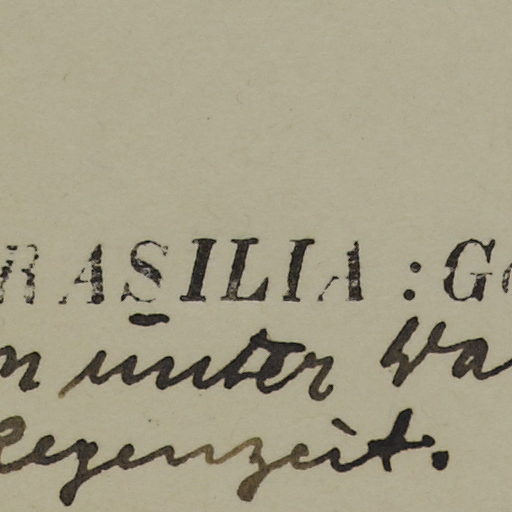 RASILIA : Go
n unter Wa
Regenzeit.